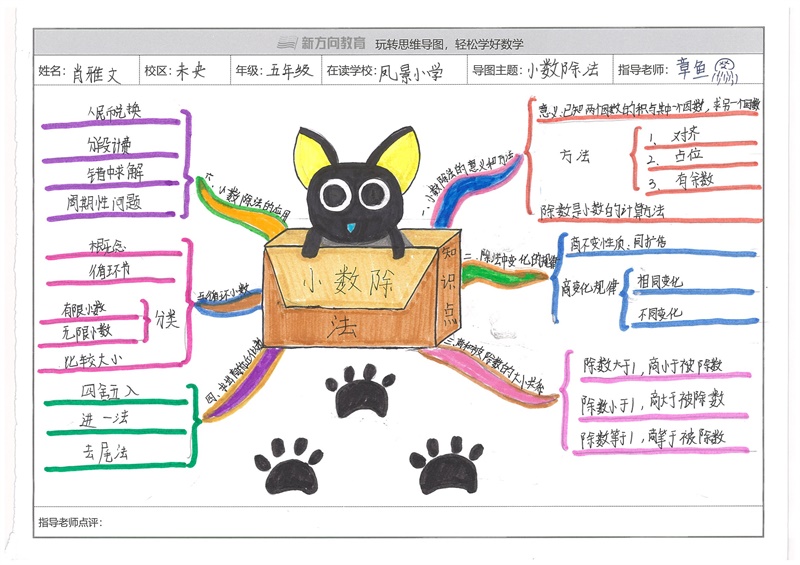 新方向教育 玩转思维导图，轻松学好数学
姓名: 肖雅文 校区: 未央 年级: 五年级 在读学校: 凤景小学 导图主题: 小数除法 指导老师: 章鱼
小数除法
知识点
一、小数除法的意义和方法
意义:已知两个因数的积与其中一个因数，求另一个因数
方法
1、对齐
2、占位
3、有余数
除数是小数的计算方法
二、除法中变化的规律
商不变性质:同扩倍
商变化规律
相同变化
不同变化
三、商和被除数的大小关系
除数大于1，商小于被除数
除数小于1，商大于被除数
除数等于1，商等于被除数
四、
四舍五入
进一法
去尾法
五、循环小数
循环节
分类
有限小数
无限小数
比较大小
六、小数除法的应用
人民币兑换
分段计费
错中求解
周期性问题
指导老师点评: